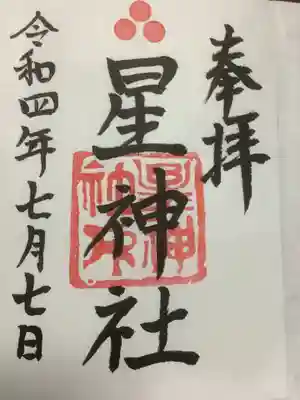 奉拝
星神社
令和四年七月七日